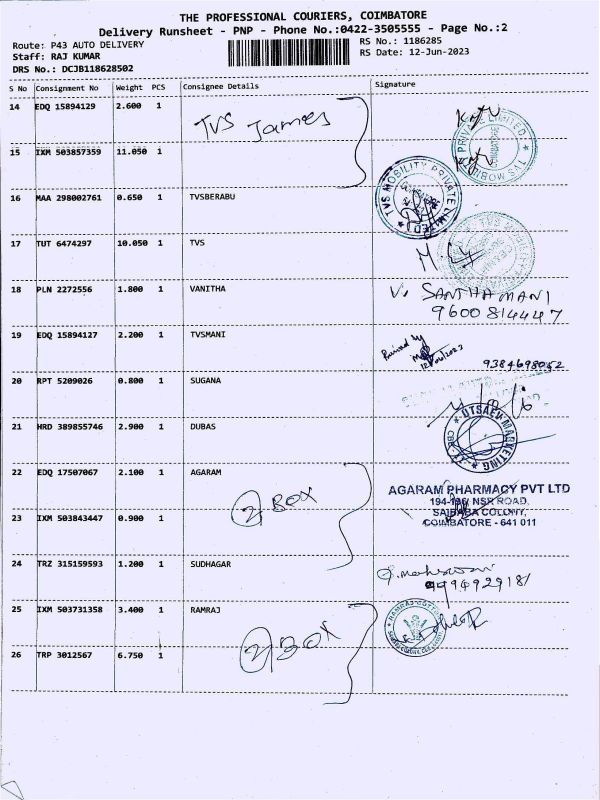 THE PROFESSIONAL COURIERS, COIMBATORE
Delivery Runsheet - PNP - Phone No.:0422-3505555 - Page No.:2
Route: P43 AUTO DELIVERY
RS No.: 1186285
Staff: RAJ KUMAR
RS Date: 12-Jun-2023
DRS No.: DCJB118628502
S No Consignment No Weight PCS Consignee Details Signature
14 EDQ 15894129 2.600 1
TVS James
15 IXM 503857359 11.050 1
TVS MOBILITY PRIVATE LIMITED
COIMBATORE
16 MAA 298002761 0.650 1 TVSBERABU
TVS MOBILITY PRIVATE LIMITED
17 TUT 6474297 10.050 1 TVS
18 PLN 2272556 1.800 1 VANITHA
V. SANTHAMANI
9600814447
19 EDQ 15894127 2.200 1 TVSMANI
9384698052
20 RPT 5209026 0.800 1 SUGANA
21 HRD 389855746 2.900 1 DUBAS
UTSAEV MARKETING
22 EDQ 17507067 2.100 1 AGARAM
2 BOX
AGARAM PHARMACY PVT LTD
194-196, NSR ROAD,
SAIBABA COLONY,
COIMBATORE - 641 011
23 IXM 503843447 0.900 1
24 TRZ 315159593 1.200 1 SUDHAGAR
9994929181
25 IXM 503731358 3.400 1 RAMRAJ
2 BOX
RAMRAJ COTTON
26 TRP 3012567 6.750 1